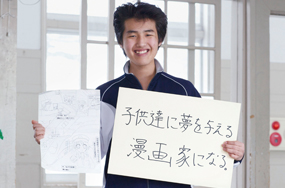 子供達に夢を与える
漫画家になる。